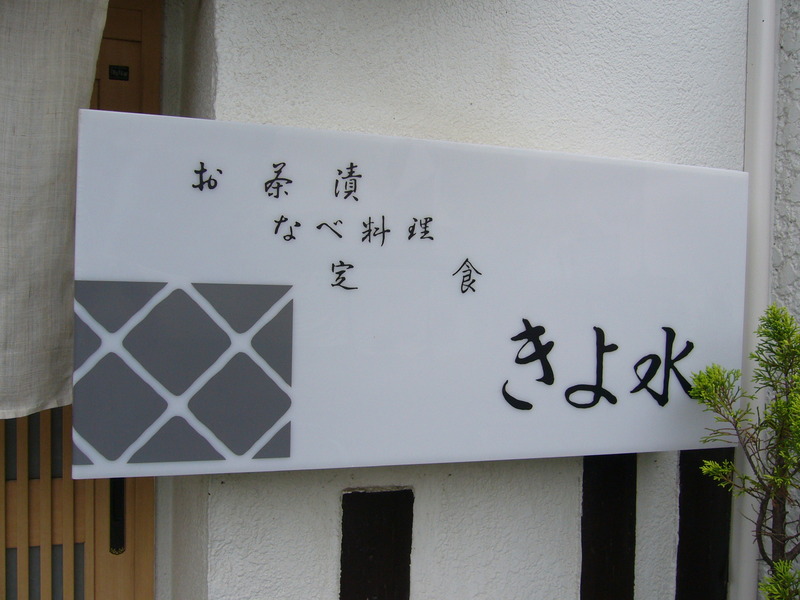 お茶漬
なべ料理
定食
きよ水